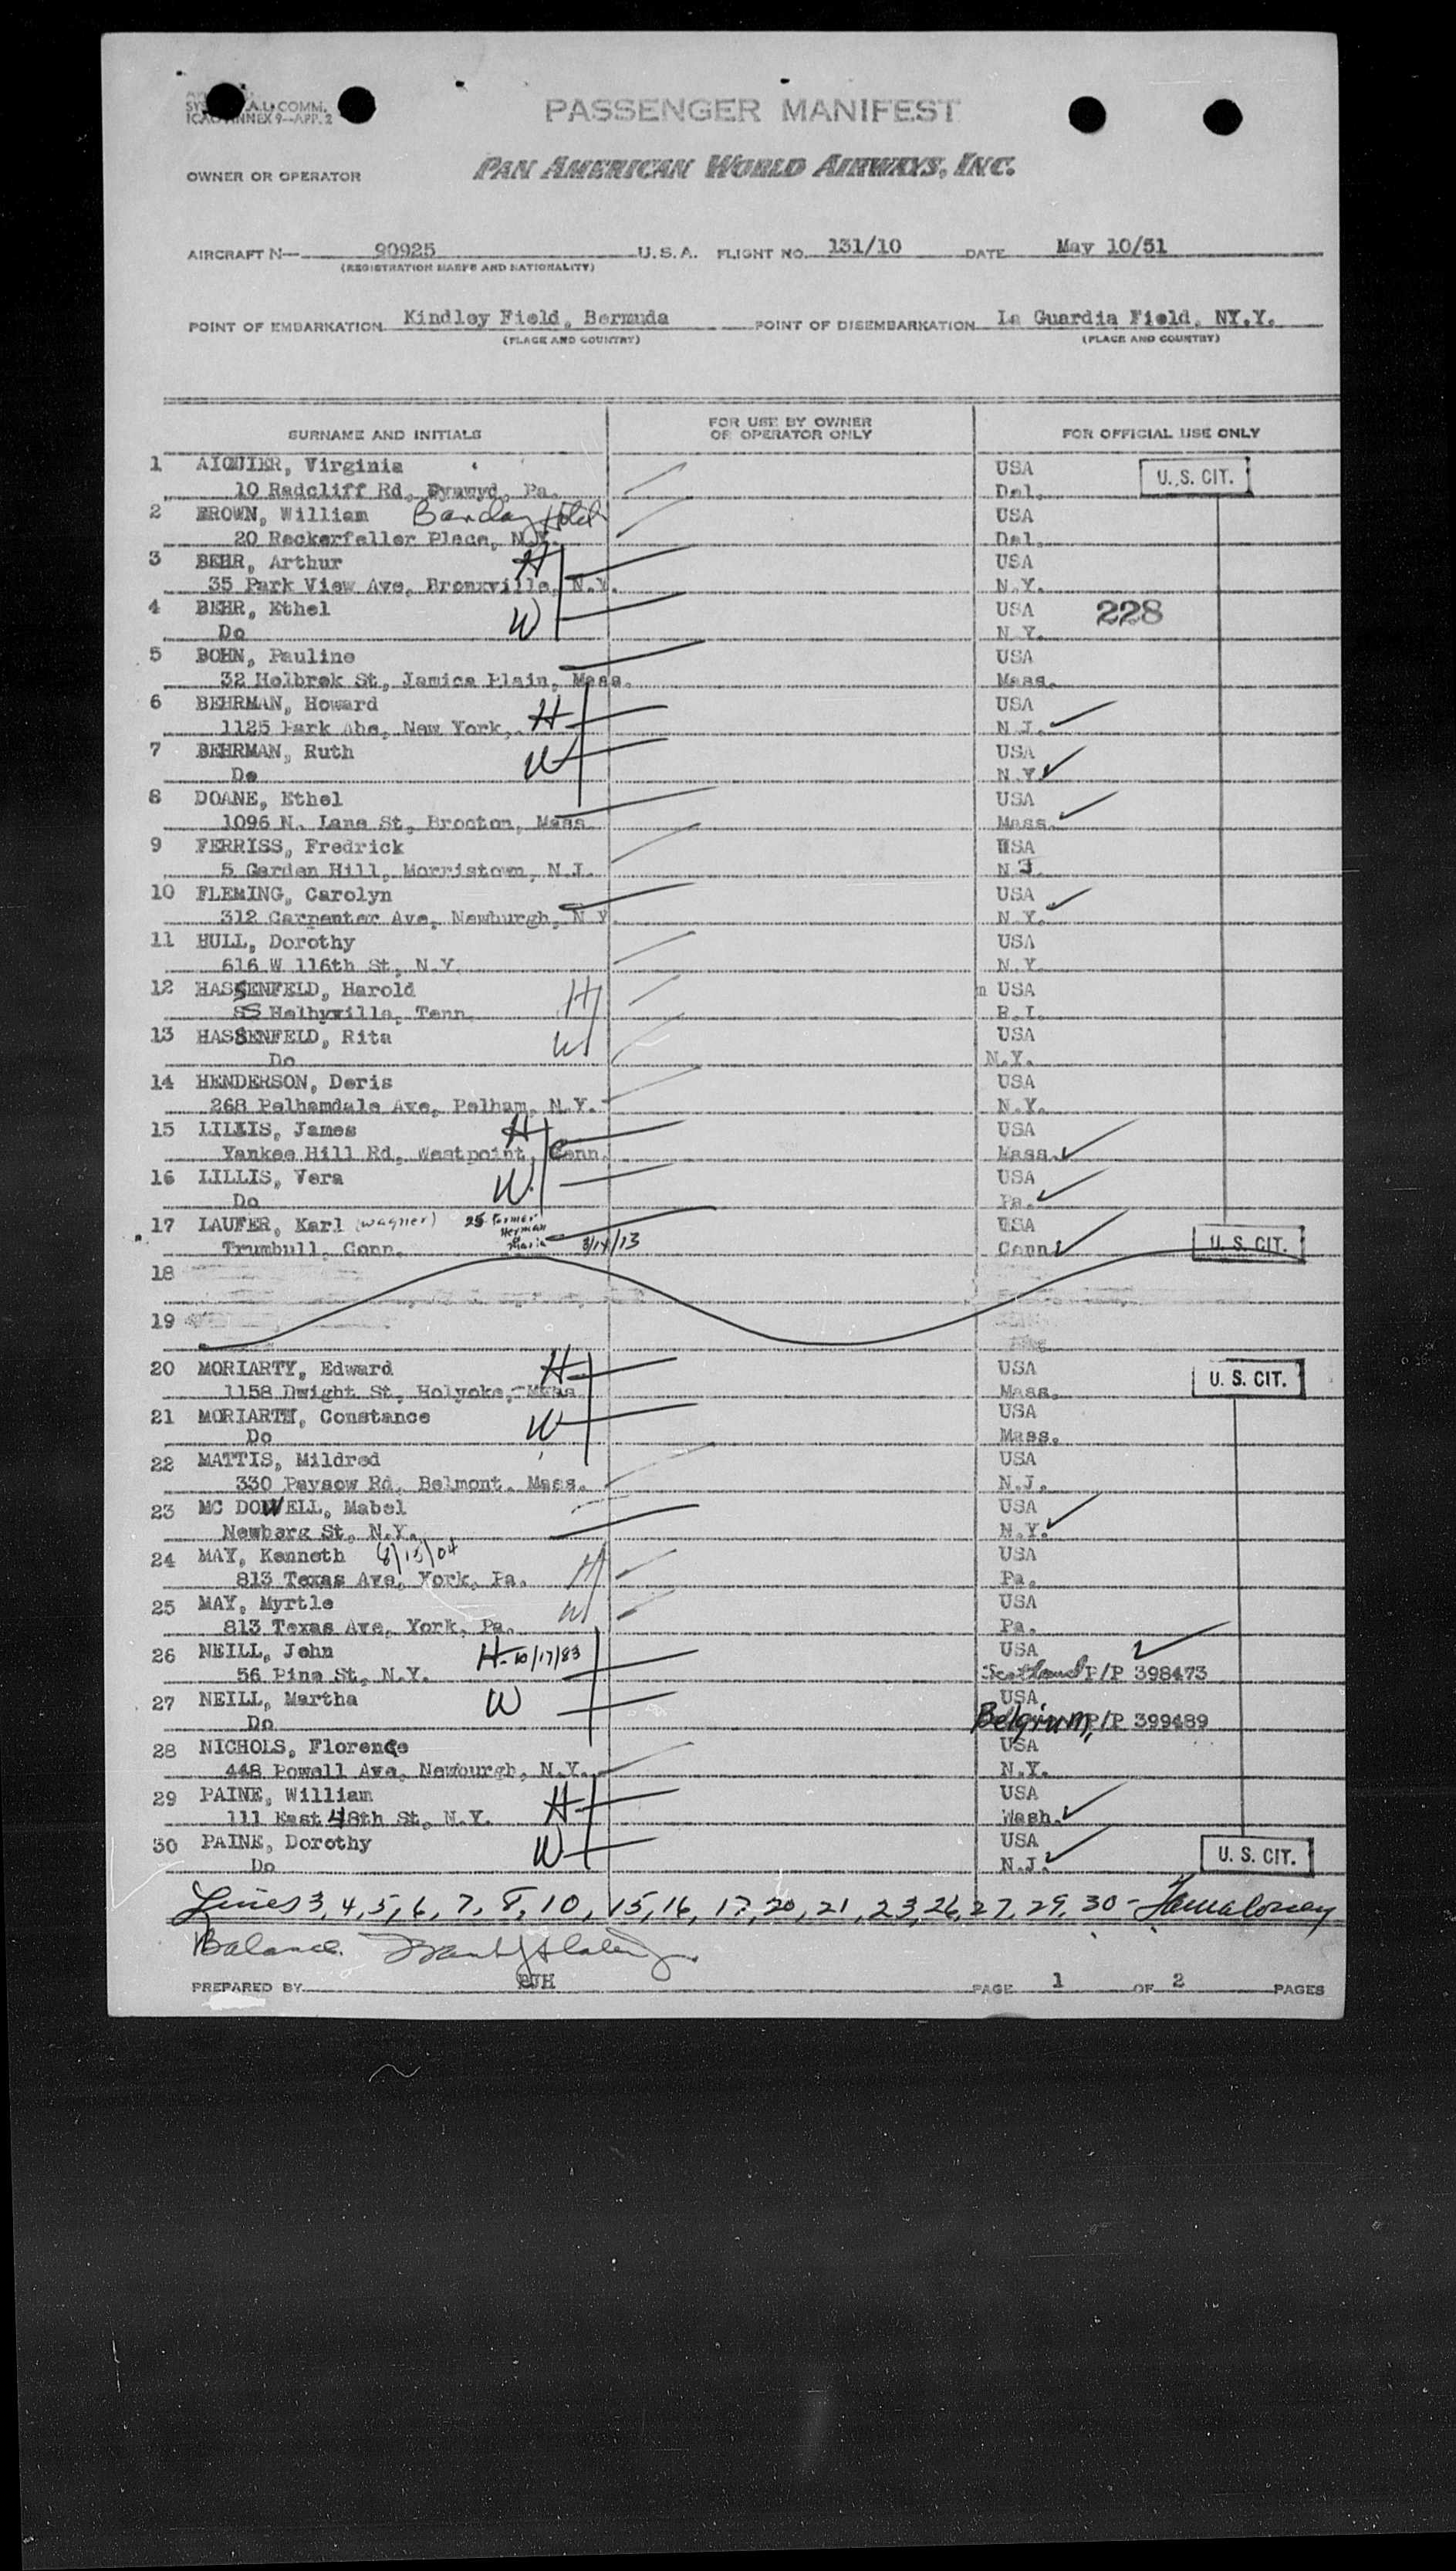 A.L. COMM.
ICAO ANNEX 9—APP. 2
PASSENGER MANIFEST
OWNER OR OPERATOR
PAN AMERICAN WORLD AIRWAYS, INC.
AIRCRAFT N— 90925 U.S.A. FLIGHT NO. 131/10 DATE May 10/51
(REGISTRATION MARKS AND NATIONALITY)
POINT OF EMBARKATION Kindley Field, Bermuda POINT OF DISEMBARKATION La Guardia Field, NY.Y.
(PLACE AND COUNTRY) (PLACE AND COUNTRY)
SURNAME AND INITIALS FOR USE BY OWNER OR OPERATOR ONLY FOR OFFICIAL USE ONLY
1 AIQUIER, Virginia USA U.S. CIT.
10 Radcliff Rd, Pa. Del.
2 BROWN, William Barclay Hotel USA
20 Rockerfeller Place, N.Y. Del.
3 BEHR, Arthur H USA
35 Park View Ave, Bronxville, N.Y. N.Y.
4 BEHR, Ethel W USA 228
Do N.Y.
5 BOHN, Pauline USA
32 Holbrok St, Jamica Plain, Mass. Mass.
6 BEHRMAN, Howard H USA
1125 Park Abe, New York, N.J.
7 BEHRMAN, Ruth W USA
Do N.Y.
8 DOANE, Ethel USA
1096 N. Lane St, Brocton, Mass. Mass.
9 FERRISS, Fredrick USA
5 Garden Hill, Morristown, N.J. N J.
10 FLEMING, Carolyn USA
312 Carpenter Ave, Newburgh, N.Y. N.Y.
11 HULL, Dorothy USA
616 W 116th St, N.Y. N.Y.
12 HASSENFELD, Harold H USA
Helbyville, Tenn. R.I.
13 HASSENFELD, Rita W USA
Do N.Y.
14 HENDERSON, Doris USA
268 Pelhamdale Ave, Pelham, N.Y. N.Y.
15 LILLIS, James H USA
Yankee Hill Rd, Westpoint, Conn. Mass.
16 LILLIS, Vera W USA
Do Pa.
17 LAUFER, Karl (Wagner) 25 Former Herman Maria USA
Trumbull, Conn. 3/14/13 Conn. U.S. CIT.
18
19
20 MORIARTY, Edward H USA
1158 Dwight St, Holyoke, Mass Mass. U.S. CIT.
21 MORIARTY, Constance W USA
Do Mass.
22 MATTIS, Mildred USA
330 Paysow Rd, Belmont. Mass. N.J.
23 MC DOWELL, Mabel USA
Newbarg St, N.Y. N.Y.
24 MAY, Kenneth 8/15/04 H USA
813 Texas Ave, York, Pa. Pa.
25 MAY, Myrtle W USA
813 Texas Ave, York, Pa. Pa.
26 NEILL, John H- 10/17/83 USA
56 Pine St, N.Y. Scotland P/P 398473
27 NEILL, Martha W USA
Do Belgium, P/P 399489
28 NICHOLS, Florence USA
448 Powell Ave, Newburgh, N.Y. N.Y.
29 PAINE, William H USA
111 East 48th St, N.Y. Wash.
30 PAINE, Dorothy W USA
Do N.J. U.S. CIT.
Lines 3, 4, 5, 6, 7, 8, 10, 15, 16, 17, 20, 21, 23, 26, 27, 29, 30 -
Balance.
PREPARED BY BJH PAGE 1 OF 2 PAGES